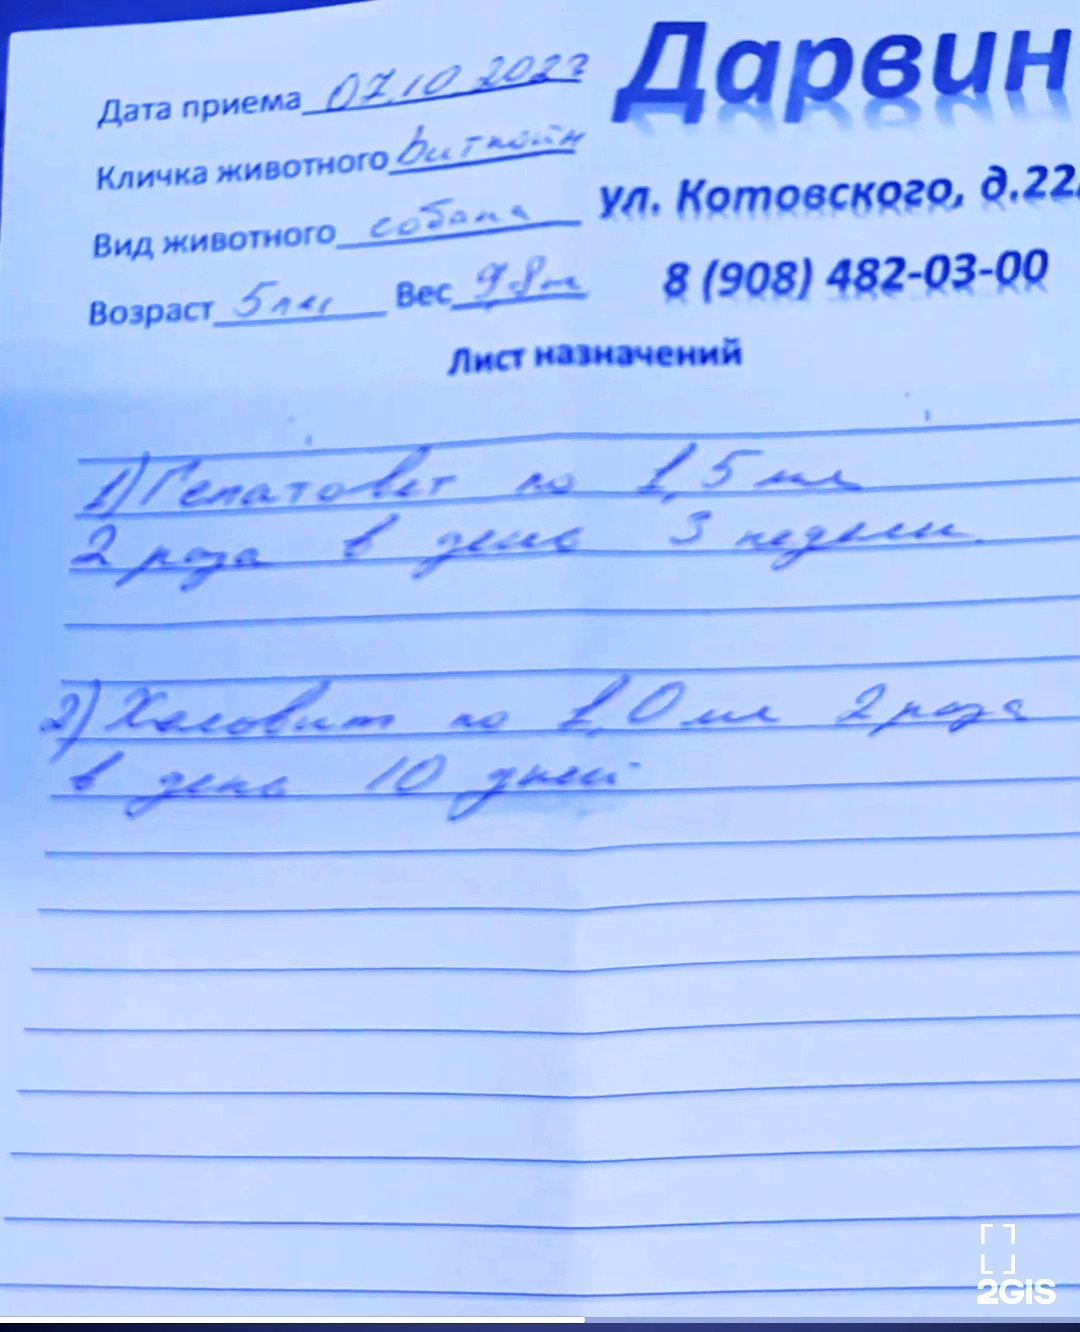 Дарвин
Дата приема 07.10 2023
Кличка животного Биткойн
ул. Котовского, д.22
Вид животного собака
8 (908) 482-03-00
Возраст 5 лет Вес 9.8кг
Лист назначений
1) Гепатовет по 1,5 мл
2 раза в день 3 недели.
2) Хеловит по 1,0 мл 2 раза
в день 10 дней
2GIS